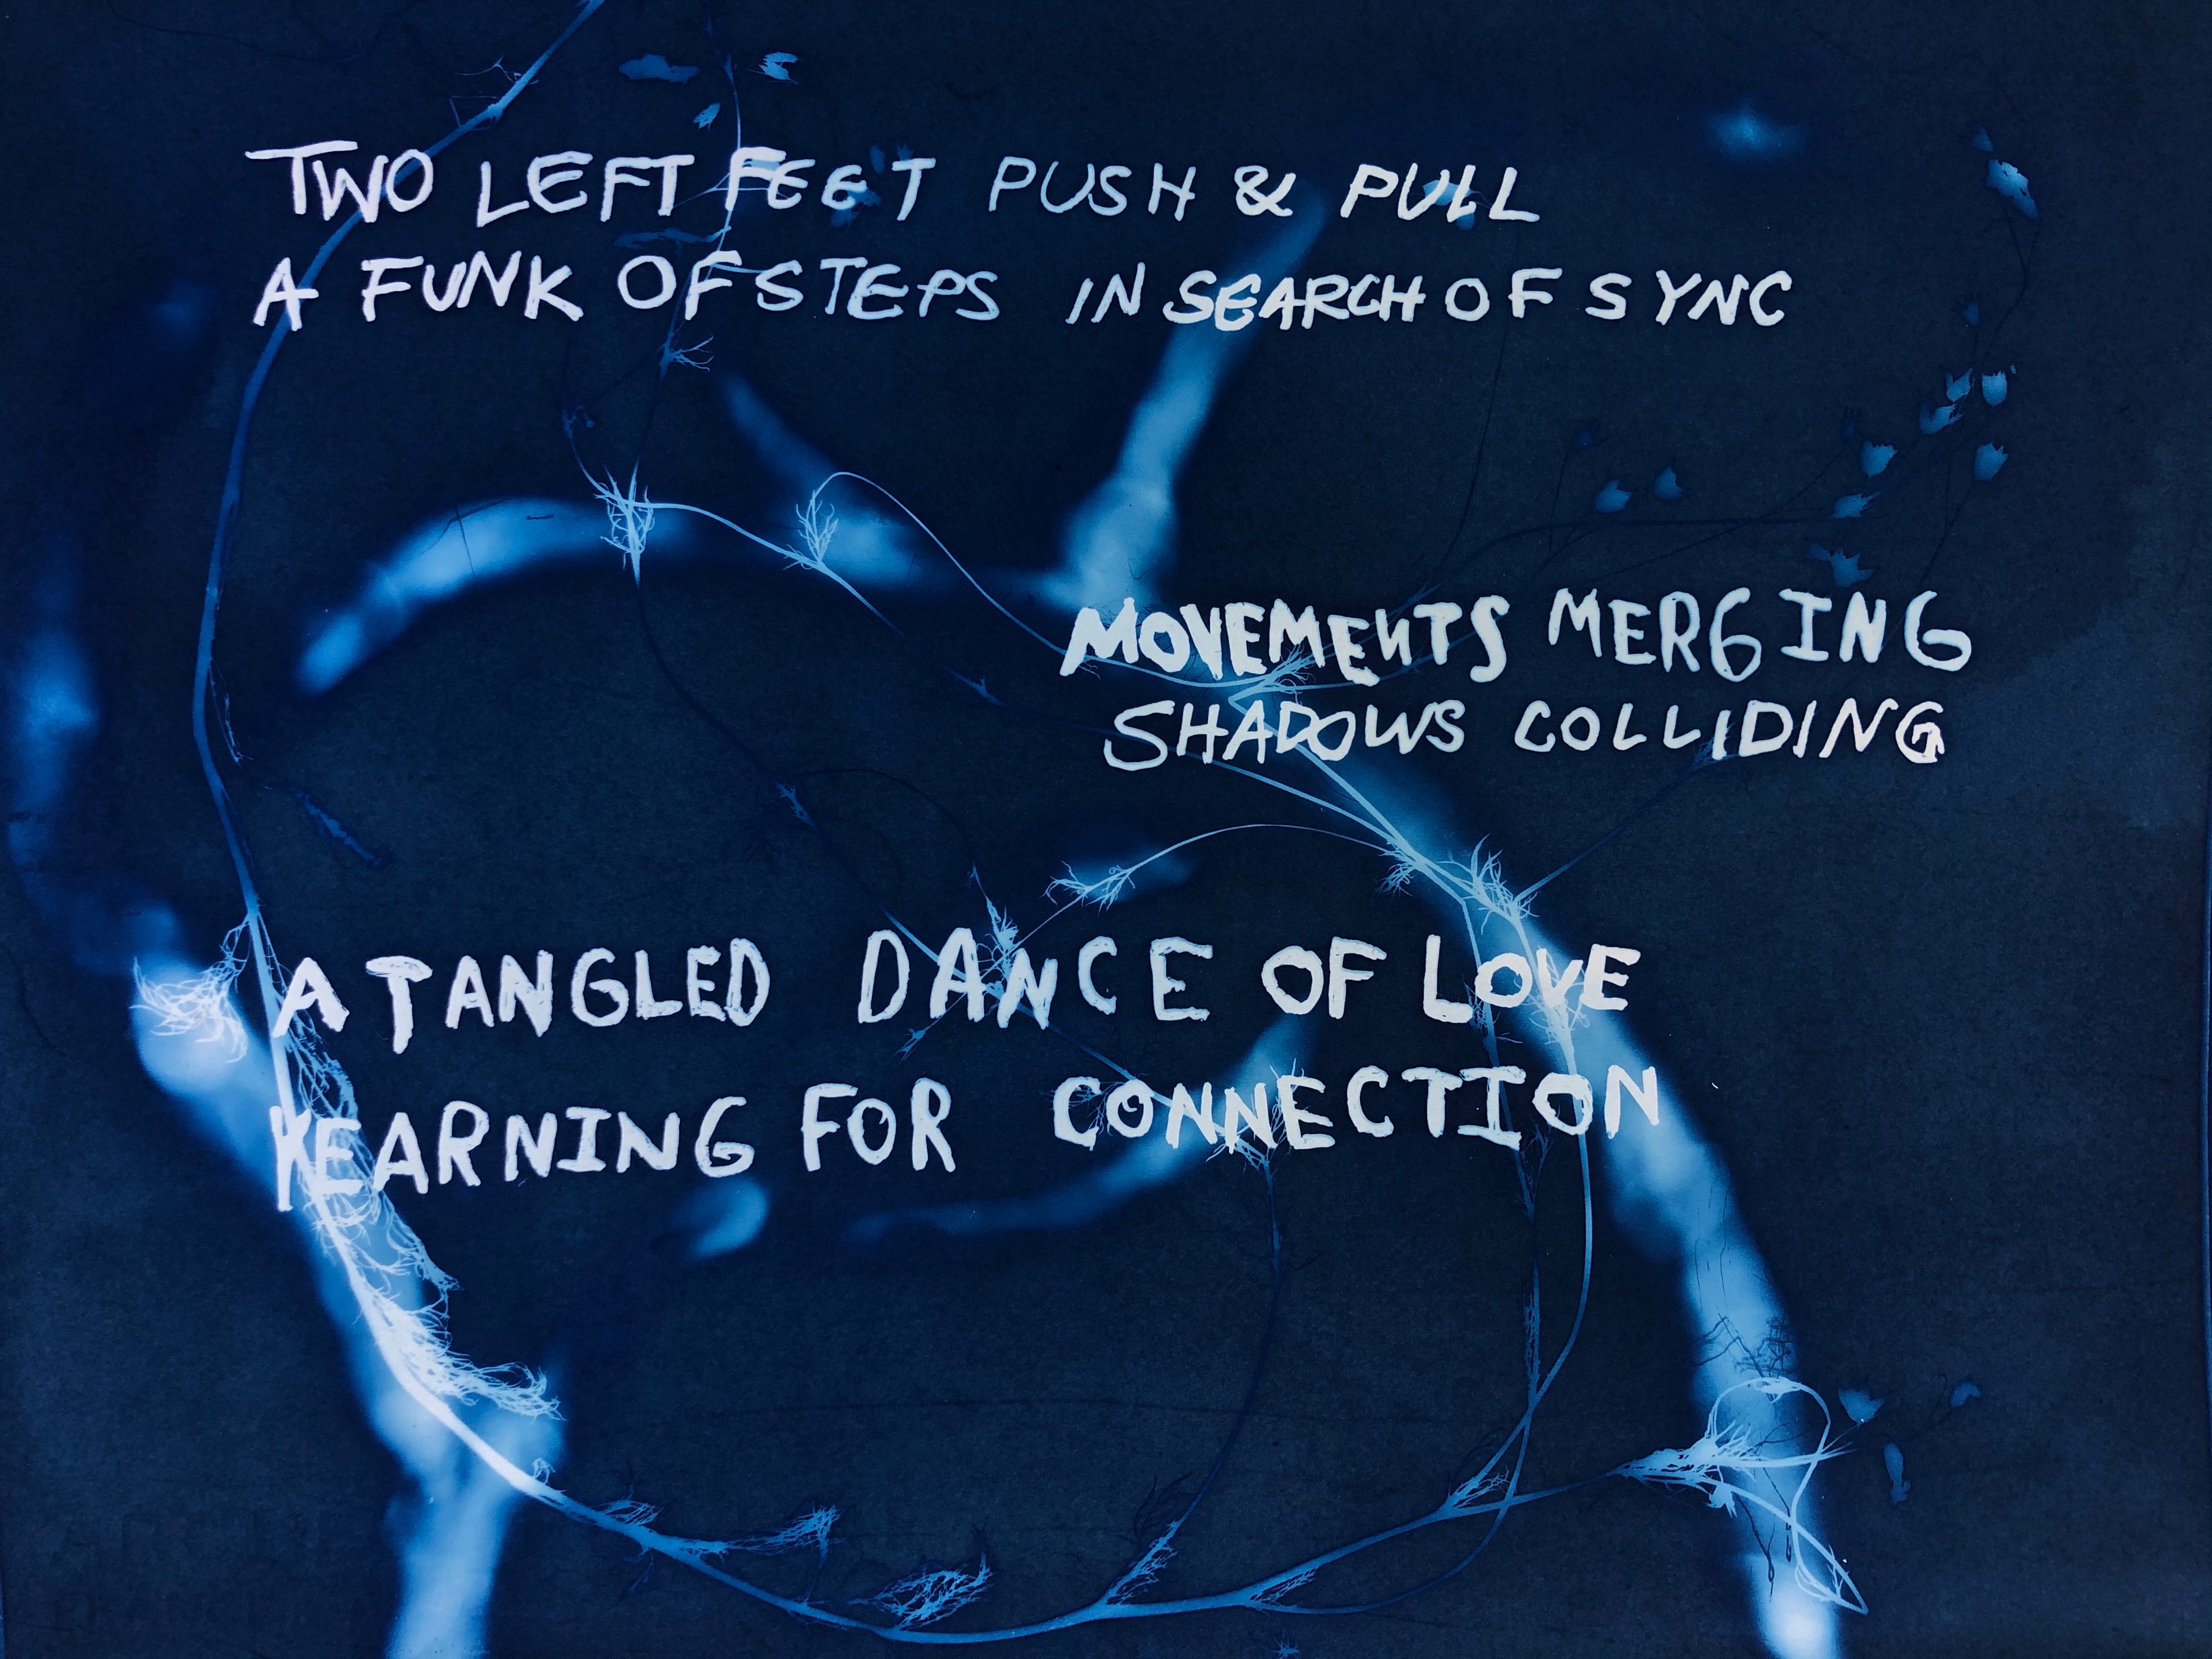 TWO LEFT FEET PUSH & PULL
A FUNK OF STEPS IN SEARCH OF SYNC
MOVEMENTS MERGING
SHADOWS COLLIDING
A TANGLED DANCE OF LOVE
YEARNING FOR CONNECTION